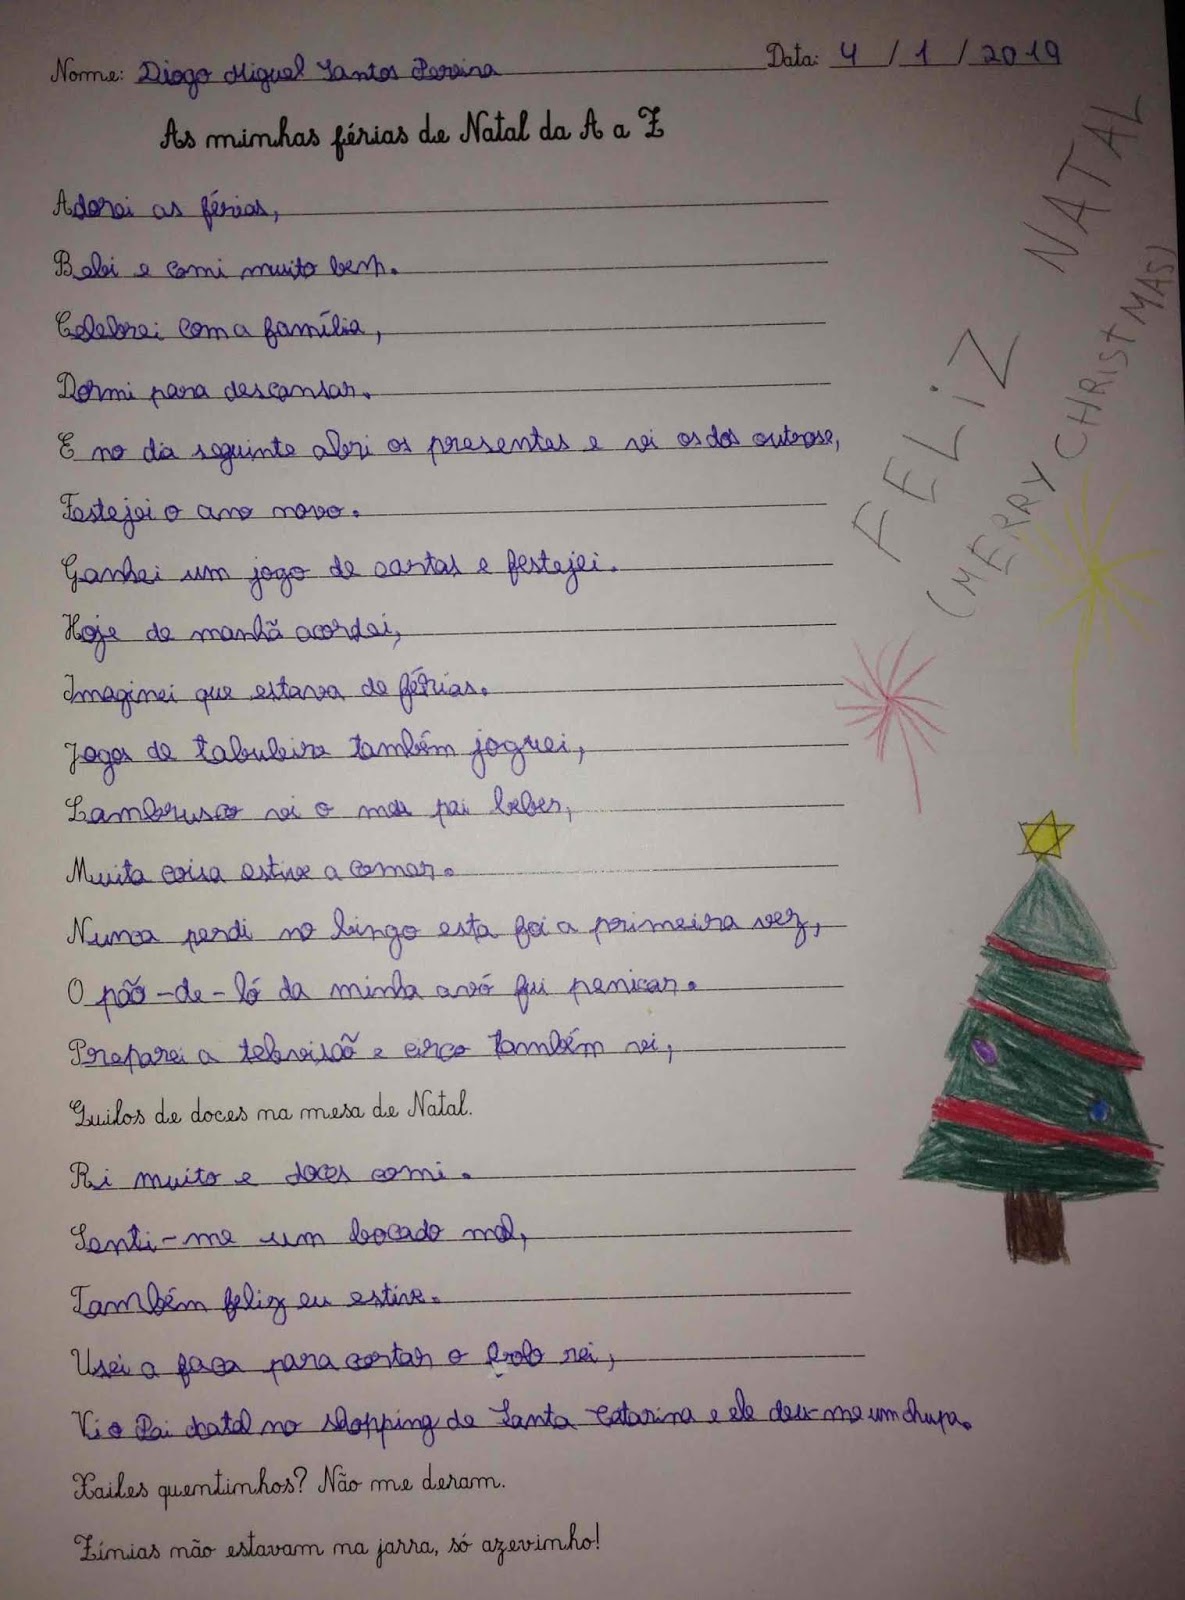 Nome: Diogo Miguel Santos Pereira Data: 4 / 1 / 2019
As minhas férias de Natal da A a Z
Adorei as férias,
Bebi e comi muito bem.
Celebrei com a família,
Dormi para descansar.
E no dia seguinte abri os presentes e vi os dos outrose,
Festejei o ano novo.
Ganhei um jogo de cartas e festejei.
Hoje de manhã acordei,
Imaginei que estava de férias.
Jogos de tabuleiro também joguei,
Lambrusco vi o meu pai beber,
Muita coisa estive a comer.
Nunca perdi no bingo esta foi a primeira vez,
O pão-de-ló da minha avó fui penicar.
Preparei a televisão e circo também vi,
Quilos de doces na mesa de Natal.
Ri muito e doces comi.
Senti-me um bocado mal,
Também feliz eu estive.
Usei a faca para cortar o bolo rei,
Vi o Pai Natal no shopping de Santa Catarina e ele deu-me um chupa.
Xailes quentinhos? Não me deram.
Zínias não estavam na jarra, só azevinho!
FELIZ NATAL
(MERRY CHRISTMAS)